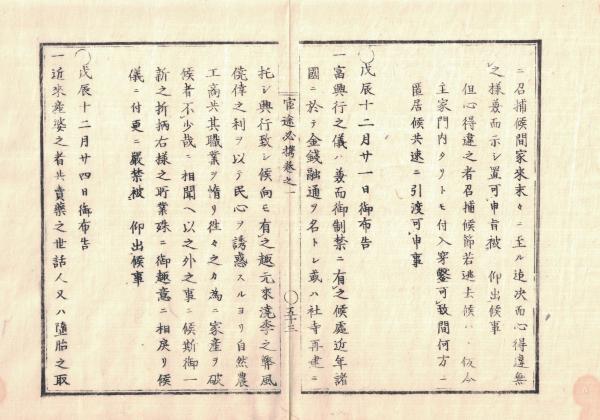 ニ召捕候間家來末々ニ至ル迄決而心得違無
之樣兼而示シ置可申旨被　仰出候事
但心得違之者召捕候節若逃去候ハヽ仮令
主家門内タリトモ付入穿鑿可致間何方ニ
匿居候共速ニ引渡可申事
○戊辰十二月廿一日御布告
一富興行之儀ハ兼而御制禁ニ有之候處近年諸
國ニ於テ金錢融通ヲ名トシ或ハ社寺再建ニ
官途必携巻之一
○五十三
托シ興行致シ候向モ有之趣元來澆季之弊風
僥倖之利ヲ以テ民心ヲ誘惑スルヨリ自然農
工商共其職業ヲ惰リ往々之カ為ニ家産ヲ破
候者不少哉ニ相聞ヘ以之外之事ニ候斯御一
新之折柄右樣之所業殊ニ御趣意ニ相戻リ候
儀ニ付更ニ嚴禁被　仰出候事
○戊辰十二月廿四日御布告
一近來産婆之者共賣藥之世話人又ハ墮胎之取